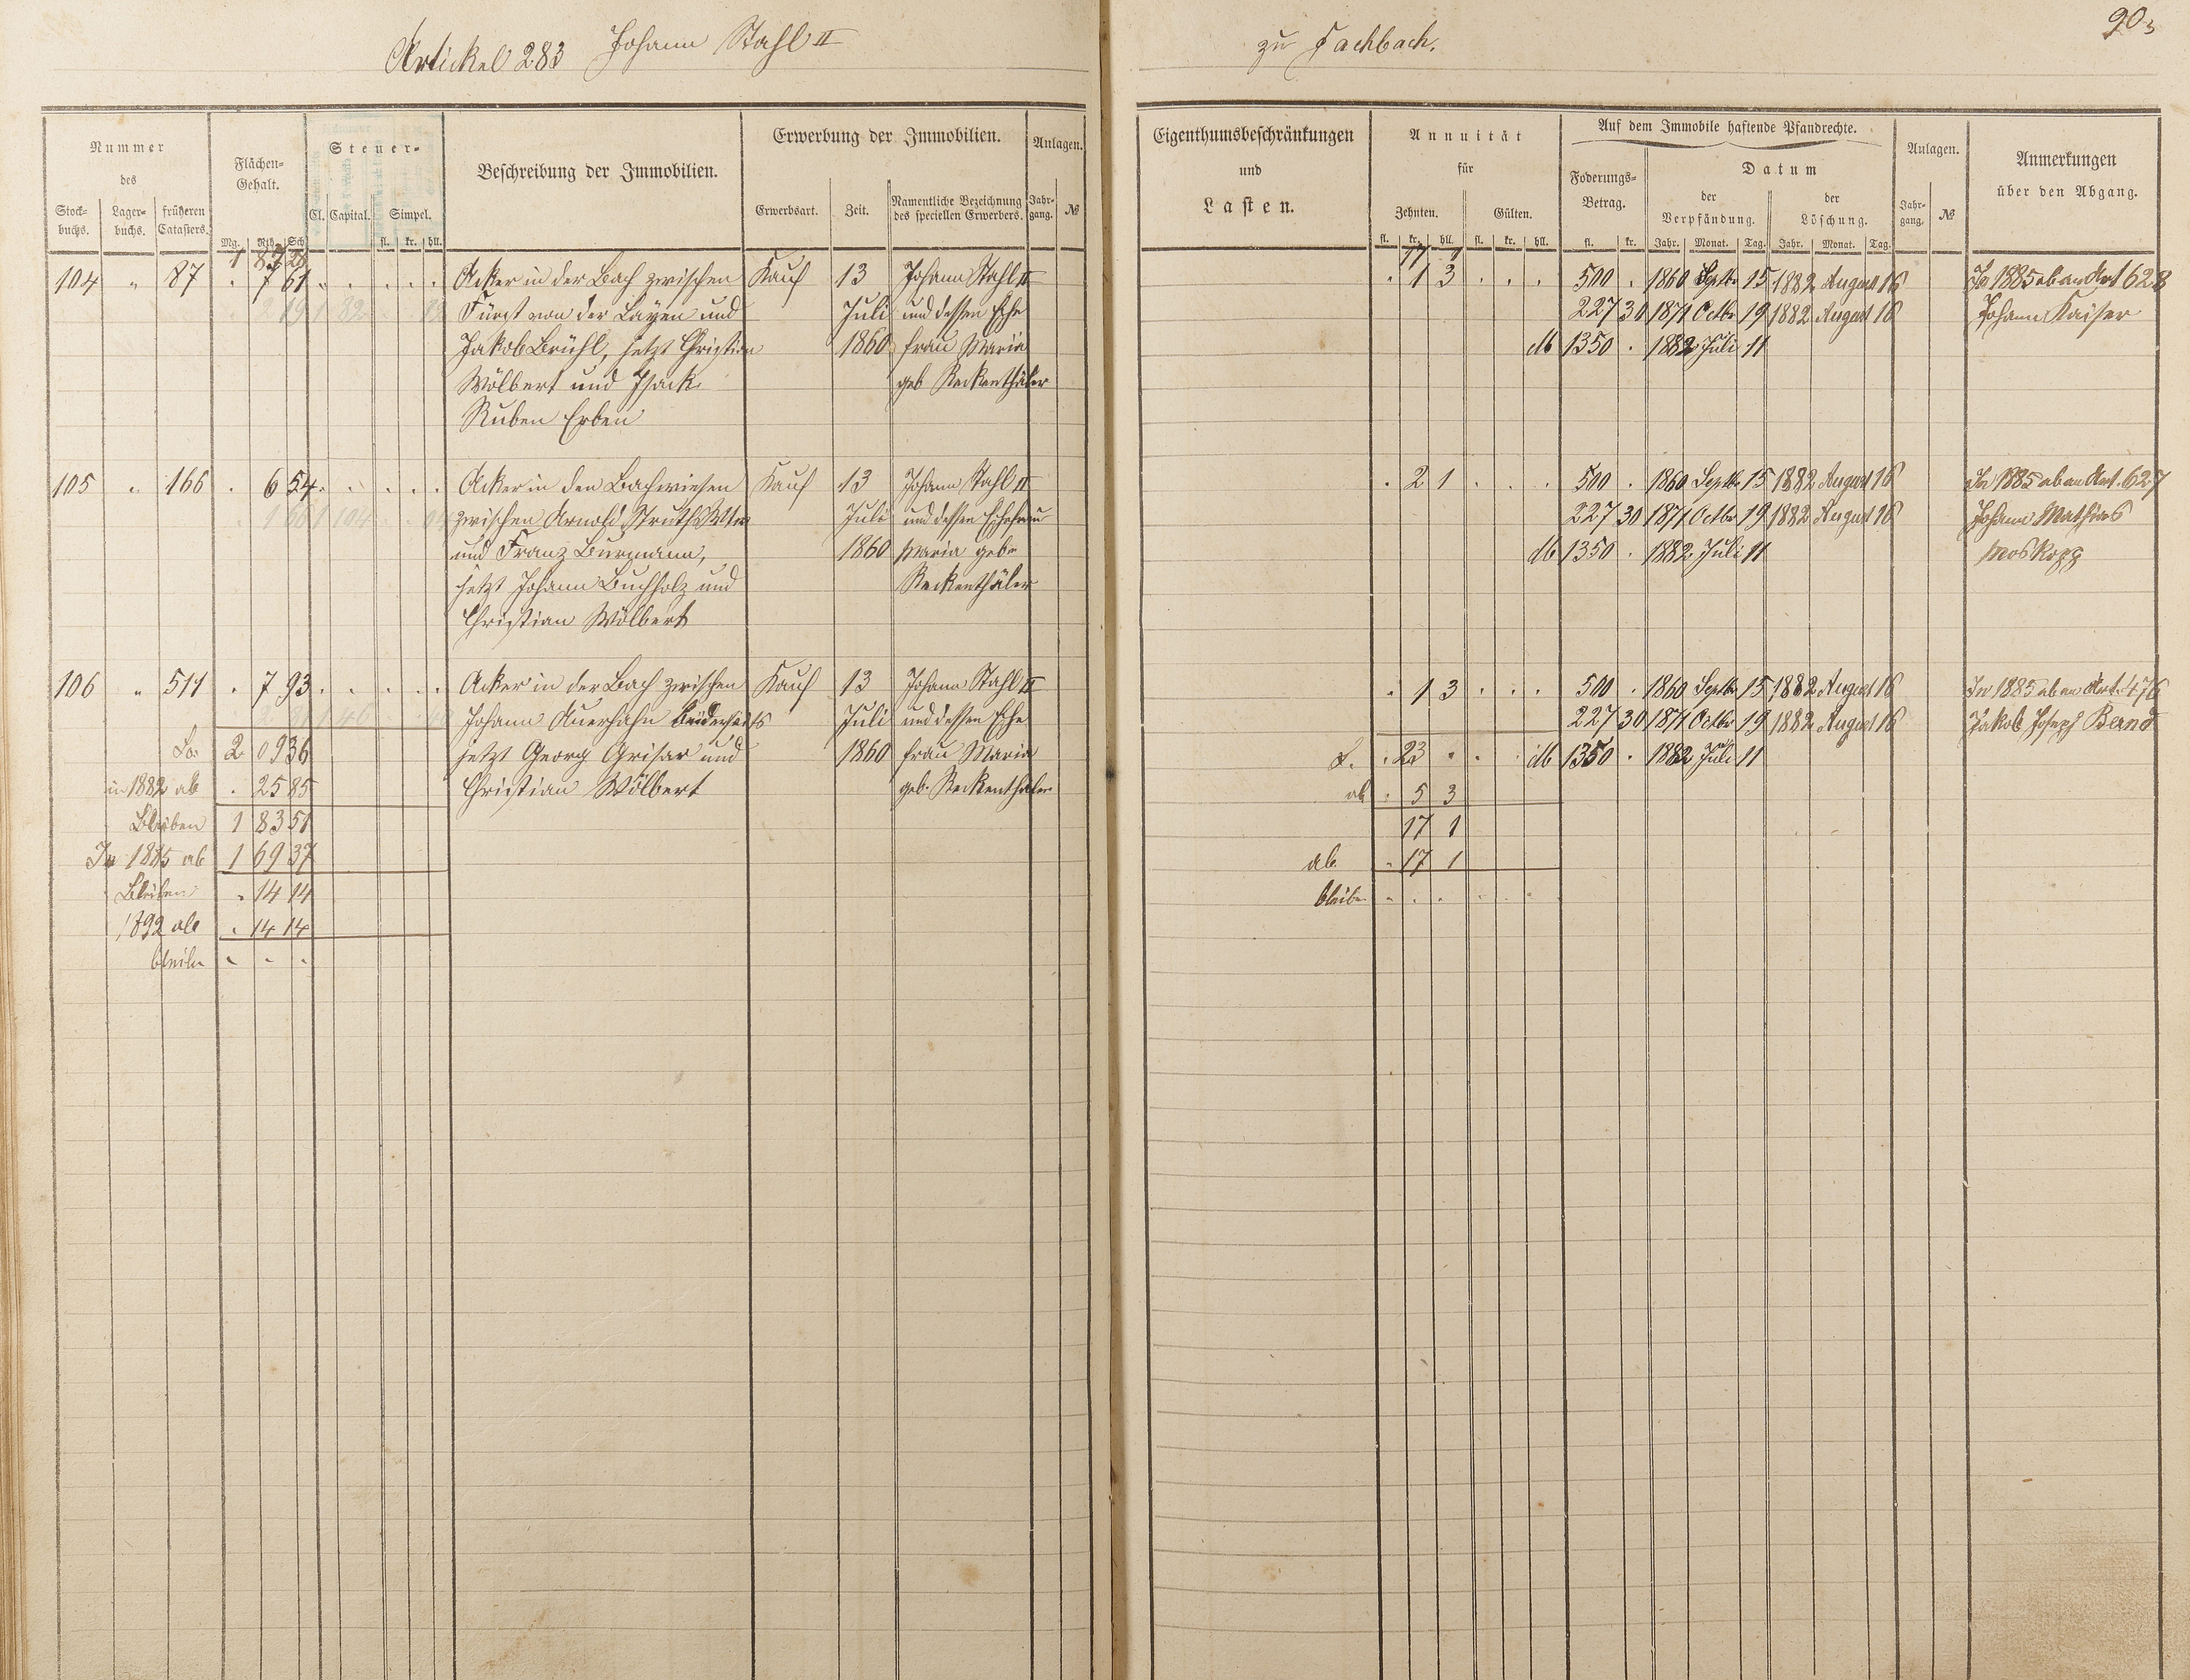 Artickel 283 Johann Stahl II
zu Fachbach.
Nummer
des
Stock-
buchs.
Lager-
buchs.
früheren
Catasters.
Flächen-
Gehalt.
Mg. Rth. Sch
Steuer-
Cl. Capital. Simpel.
fl. kr. hll.
Beschreibung der Immobilien.
Erwerbung der Immobilien.
Erwerbsart. Zeit. Namentliche Bezeichnung
des speciellen Erwerbers.
Anlagen.
Jahr-
gang. №
Eigenthumsbeschränkungen
und
Lasten.
Annuität
für
Zehnten. Gülten.
fl. kr. hll. fl. kr. hll.
Auf dem Immobile haftende Pfandrechte.
Foderungs-
Betrag.
fl. kr.
Datum
der
Verpfändung.
der
Löschung.
Jahr. Monat. Tag. Jahr. Monat. Tag.
Anlagen.
Jahr-
gang. №
Anmerkungen
über den Abgang.
17 1
104 " 87 . 7 61 Acker in der Bach zwischen Kauf 13 Johann Stahl II
Fürst von der Layen und Juli und dessen Ehe
Jakob Brühl, jetzt Christian 1860 frau Maria
Wölbert und Isack geb Reckenthäler
Ruben Erben
. 1 3 . . . 500 . 1860 Septbr 15 1882 August 16 In 1885 ab an Art 628
227 30 1871 Octbr 19 1882 August 16 Johann Kaiser
M 1350 . 1882 Juli 11
105 " 166 . 6 54 Acker in den Bachwiesen Kauf 13 Johann Stahl II
zwischen Arnold Struth Juli und dessen Ehefrau
und Franz Burmann, 1860 Maria geb
jetzt Johann Buchholz und Reckenthäler
Christian Wölbert
. 2 1 . . . 500 . 1860 Septbr 15 1882 August 16 In 1885 ab an Art. 627
227 30 1871 Octbr 19 1882 August 16 Johann Mathias
M 1350 . 1882 Juli 11 Moskopp
106 " 511 . 7 93 Acker in der Bach zwischen Kauf 13 Johann Stahl II
Johann Auerhahn beiderseits Juli und dessen Ehe
jetzt Georg Grisar und 1860 frau Maria
Christian Wölbert geb. Reckenthäler
Sa. 2 09 36
in 1882 ab . 25 85
Bleiben 1 83 51
In 1885 ab 1 69 37
Bleiben . 14 14
1892 ab . 14 14
bleiben . . .
. 1 3 . . . 500 . 1860 Septbr 15 1882 August 16 In 1885 ab an Art. 476
227 30 1871 Octbr 19 1882 August 16 Jakob Joseph Bernd
S. . 23 . . M 1350 . 1882 Juli 11
ab . 5 3
17 1
ab . 17 1
bleiben . . .